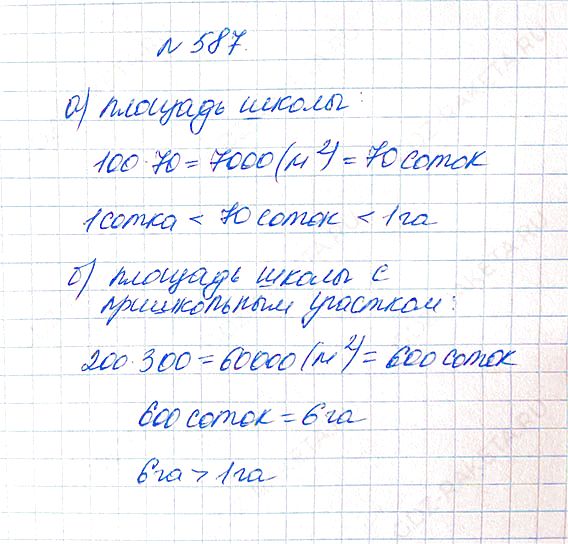 № 587.
а) площадь школы:
100·70 = 7000 (м²) = 70 соток
1 сотка < 70 соток < 1 га
б) площадь школы с
пришкольным участком:
200·300 = 60000 (м²) = 600 соток
600 соток = 6 га
6 га > 1 га
GDZ-RAKETA.RU